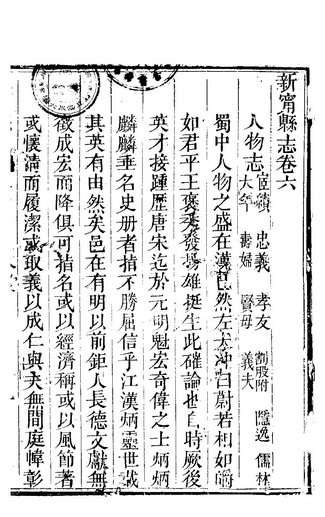 新甯縣志卷六
人物志 宦績 忠義 孝友 割股附 隱逸 儒林
大年 壽婦 賢母 義夫
蜀中人物之盛在漢已然左太冲曰蔚若相如皭
如君平王褒發揚雄挺生此確論也自時厥後
英才接踵歷唐宋迄於元明魁宏奇偉之士炳炳
麟麟垂名史册者指不勝屈信乎江漢炳靈世載
其英有由然矣邑在有明以前鉅人長德文獻無
徵成宏而降俱可指名或以經濟稱或以風節著
或懷清而履潔或取義以成仁與夫無間庭幃彰